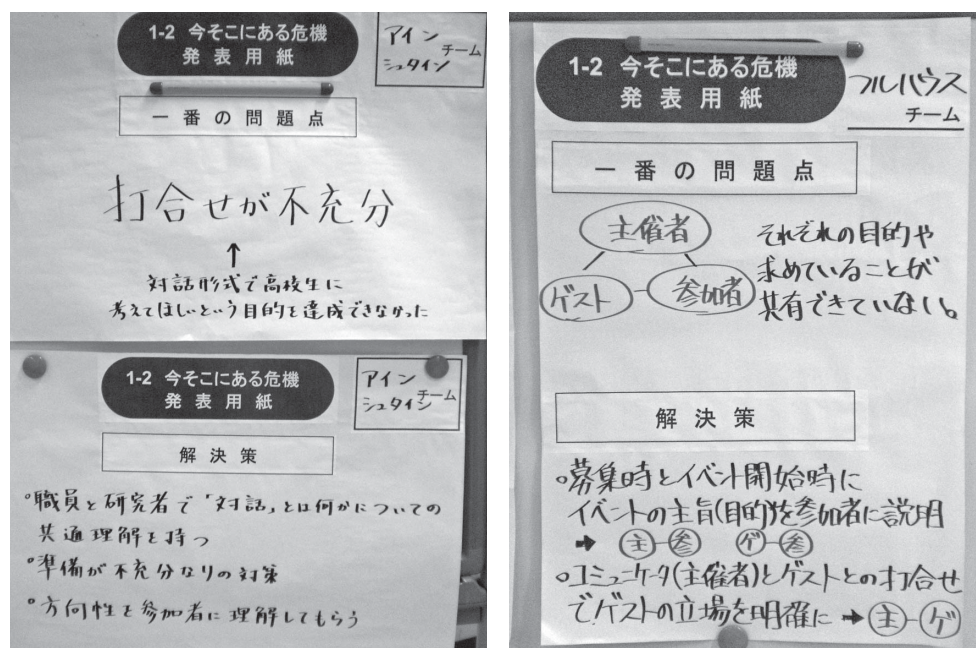 1-2 今そこにある危機
発表用紙
アイン
シュタイン
チーム
一番の問題点
打合せが不充分
↑
対話形式で高校生に
考えてほしいという目的を達成できなかった
1-2 今そこにある危機
発表用紙
アイン
シュタイン
チーム
解決策
°職員と研究者で「対話」とは何かについての
共通理解を持つ
°準備が不充分なりの対策
°方向性を参加者に理解してもらう
1-2 今そこにある危機
発表用紙
フルハウス
チーム
一番の問題点
主催者
ゲスト
参加者
それぞれの目的や
求めていることが
共有できていない。
解決策
°募集時とイベント開始時に
イベントの主旨(目的)を参加者に説明
➡ 主-参 ゲ-参
°コミュニケータ(主催者)とゲストとの打合せ
でゲストの立場を明確に ➡主-ゲ